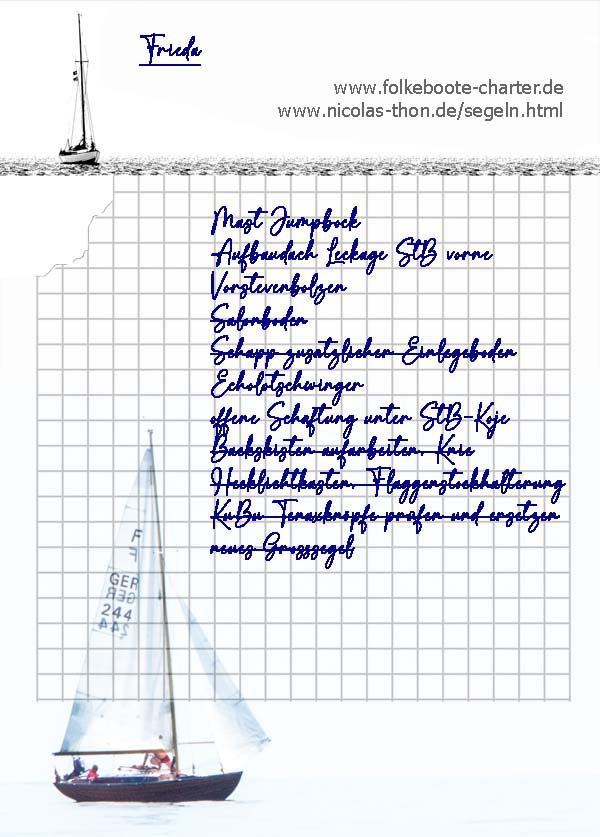 Frieda
www.folkeboote-charter.de
www.nicolas-thon.de/segeln.html
Mast Jumpbock
Aufbaudach Leckage StB vorne
Vorstevenbolzen
Salonboden
Schapp zusätzlicher Einlegeboden
Echolotschwinger
offene Schäftung unter StB-Koje
Backskisten aufarbeiten, Knie
Hecklichtkasten, Flaggenstockhalterung
KuBu Tenaxknöpfe prüfen und ersetzen
neues Grosssegel
F
GER
244